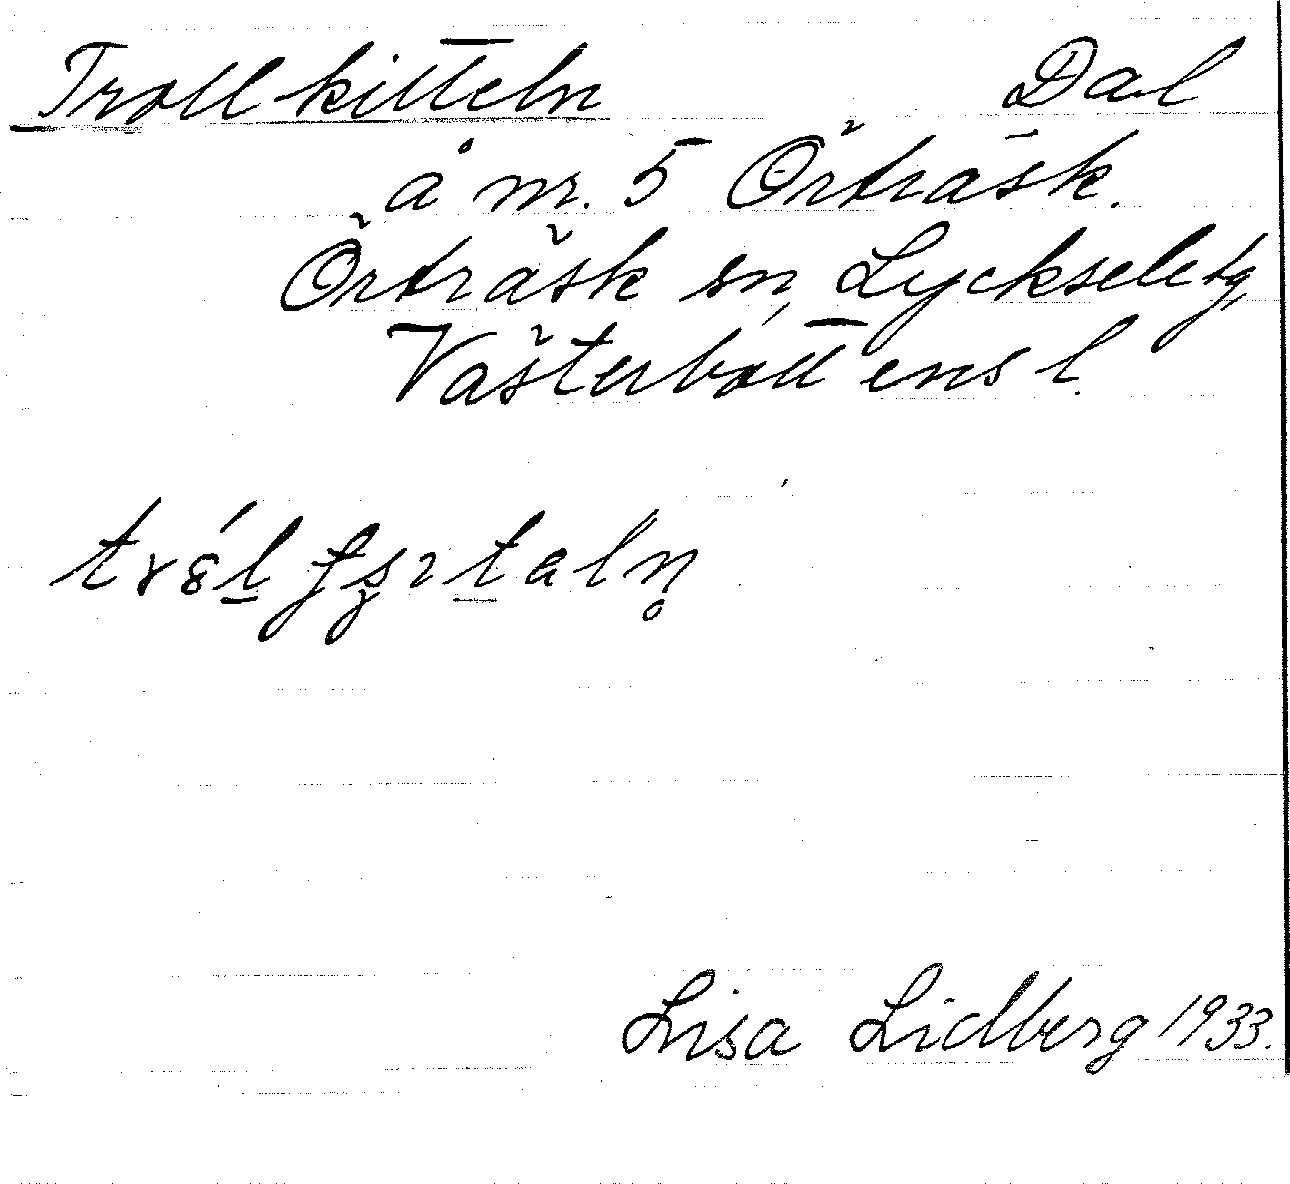 Trollkitteln Dal
å nr. 5 Örträsk.
Örträsk sn, Lycksele tg,
Västerbottens l.
Lisa Lidberg 1933.